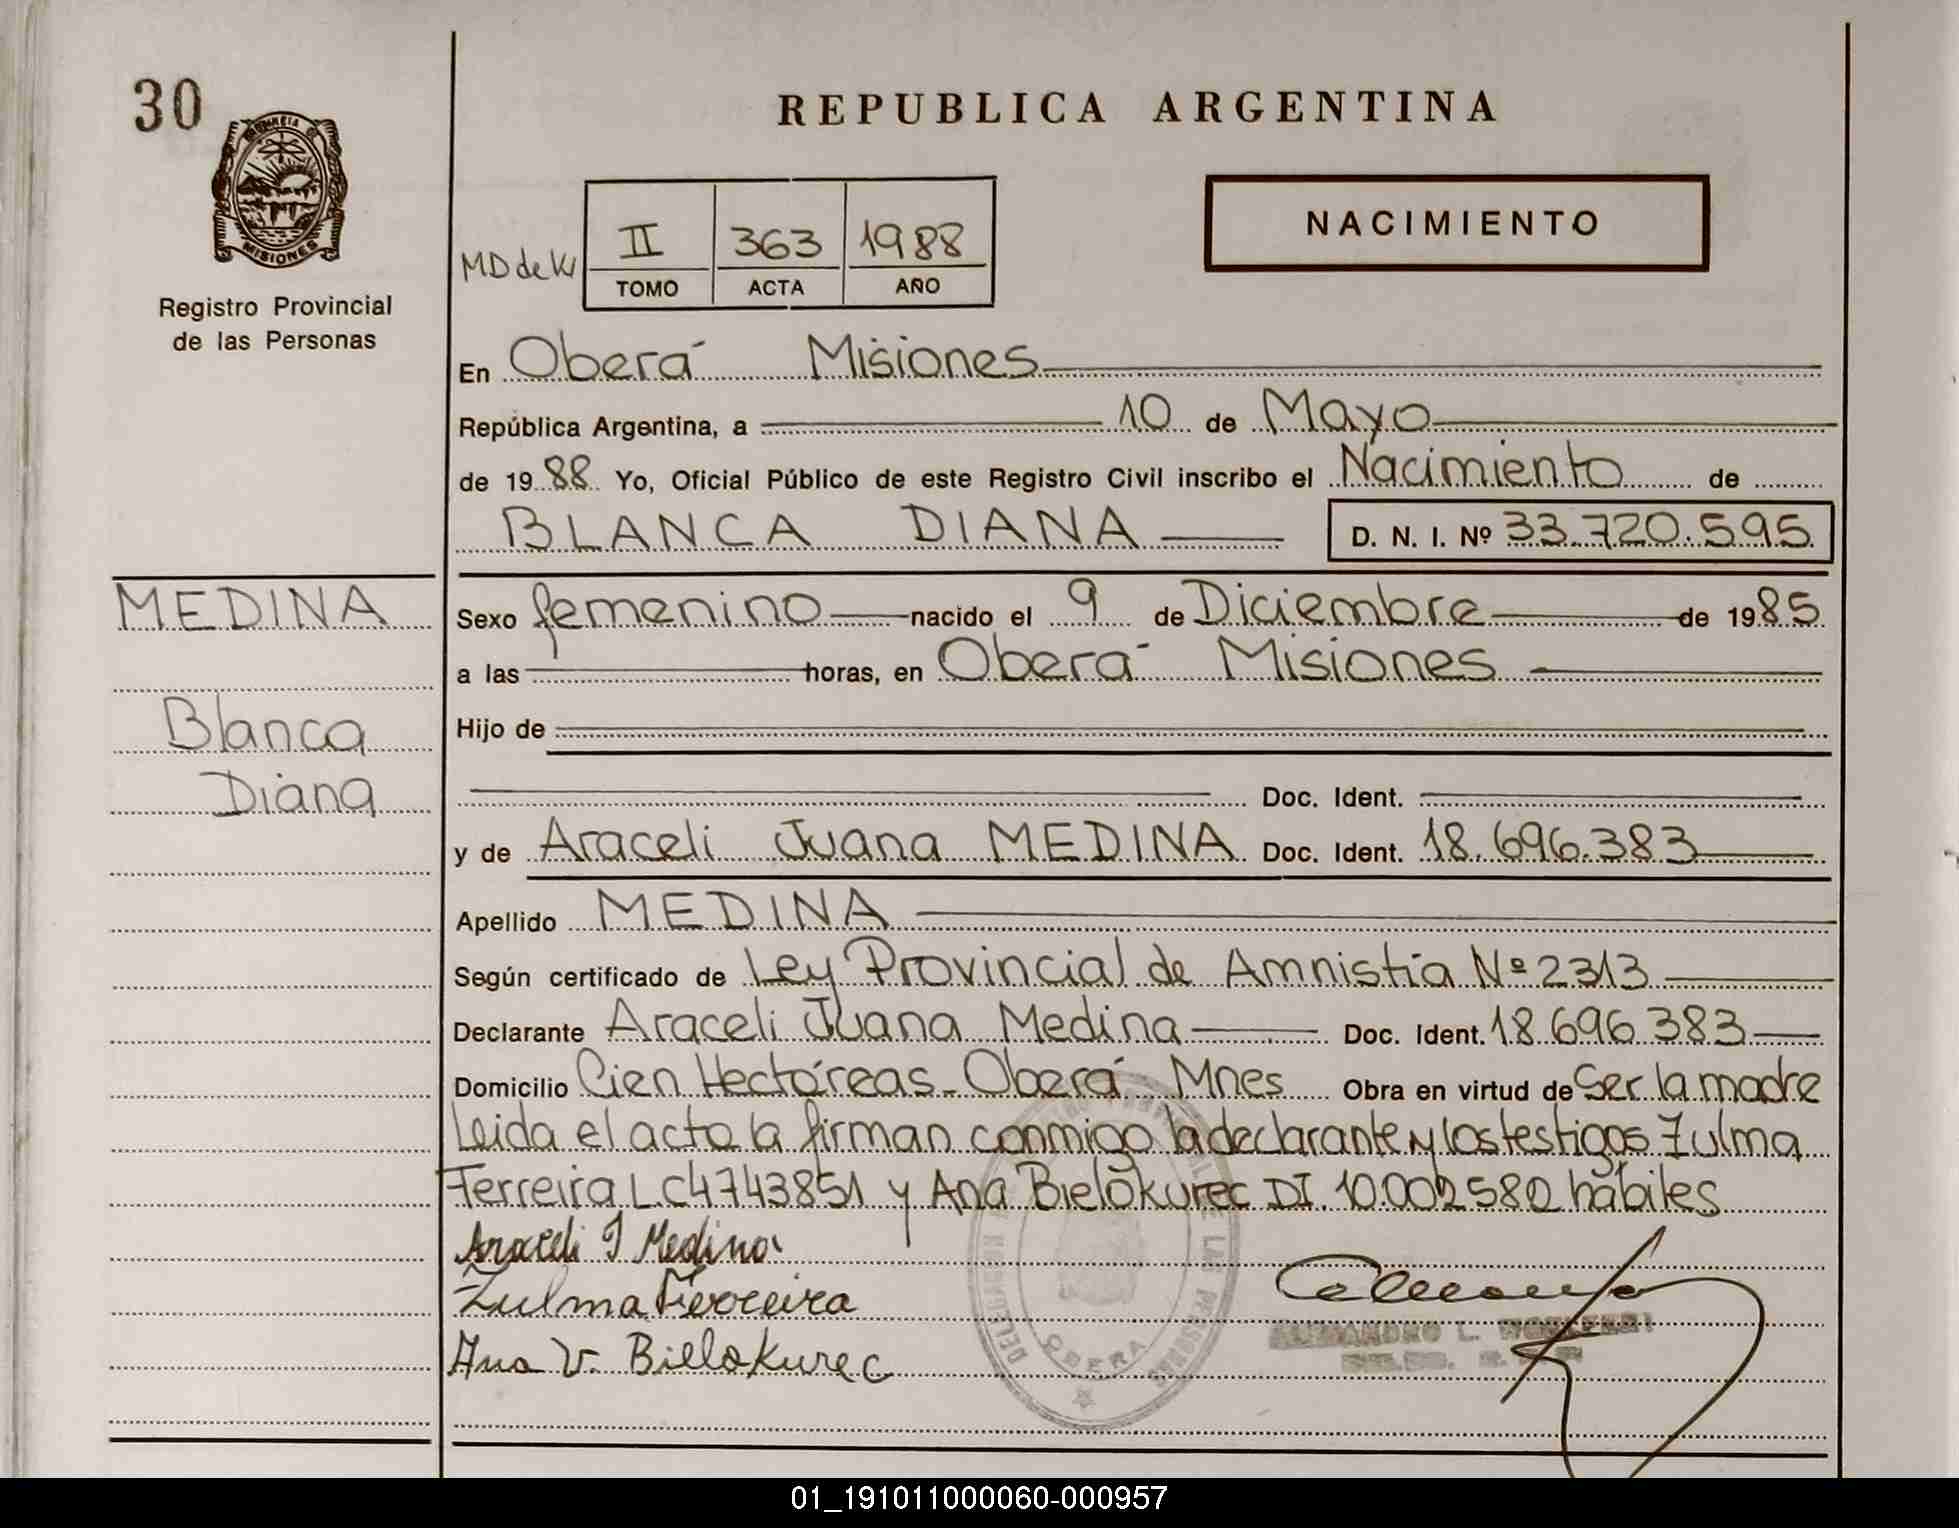 30
PROVINCIA DE
MISIONES
Registro Provincial
de las Personas
REPUBLICA ARGENTINA
NACIMIENTO
II 363 1988
TOMO ACTA AÑO
En Oberá Misiones
República Argentina, a 10 de Mayo
de 1988 Yo, Oficial Público de este Registro Civil inscribo el Nacimiento de
BLANCA DIANA D. N. I. Nº 33.720.595
MEDINA
Blanca
Diana
Sexo femenino nacido el 9 de Diciembre de 1985
a las horas, en Oberá Misiones
Hijo de
Doc. Ident.
y de Araceli Juana MEDINA Doc. Ident. 18.696.383
Apellido MEDINA
Según certificado de Ley Provincial de Amnistía Nº 2313
Declarante Araceli Juana Medina Doc. Ident. 18.696.383
Domicilio Cien Hectóreas - Oberá Mnes Obra en virtud de Ser la madre
Leida el acta la firman conmigo la declarante y los testigos Zulma
Ferreira LC4743851 y Ana Bielokurec DI. 10.002580 hábiles
Araceli J Medina
Zulma Ferreira
Ana V. Bielokurec
DELEGACION
DE LAS PERSONAS
OBERA
ALEJANDRO L.
01_191011000060-000957